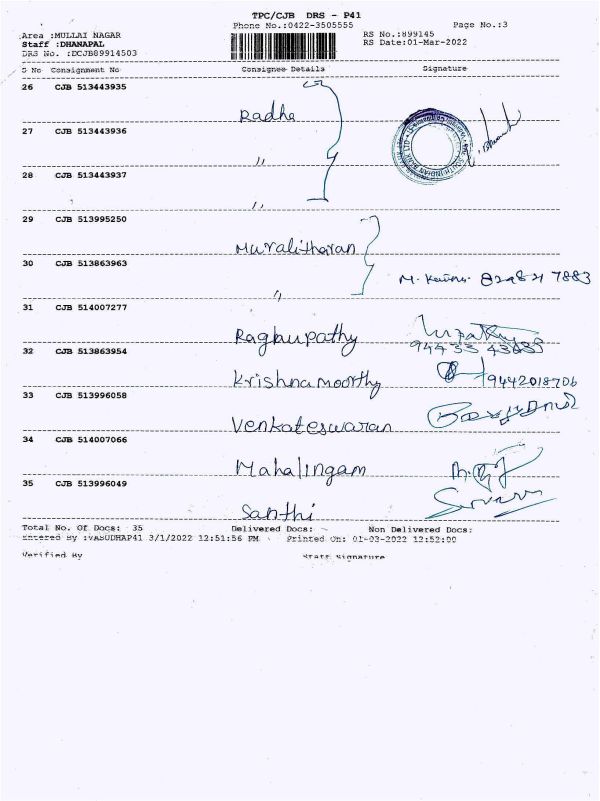 TPC/CJB DRS - P41
Phone No.:0422-3505555 Page No.:3
Area :MULLAI NAGAR RS No.:899145
Staff :DHANAPAL RS Date:01-Mar-2022
DRS No. :DCJB89914503
S No Consignment No Consignee Details Signature
26 CJB 513443935
Radha
27 CJB 513443936
"
28 CJB 513443937
"
29 CJB 513995250
Muralitharan
30 CJB 513863963
"
31 CJB 514007277
Raghupathy
32 CJB 513863954
Krishnamoorthy 9442018706
33 CJB 513996058
Venkateswaran
34 CJB 514007066
Mahalingam
35 CJB 513996049
Santhi
Total No. Of Docs: 35 Delivered Docs: Non Delivered Docs:
Entered By :VASUDHAP41 3/1/2022 12:51:56 PM Printed On: 01-03-2022 12:52:00
Verified By Staff Signature